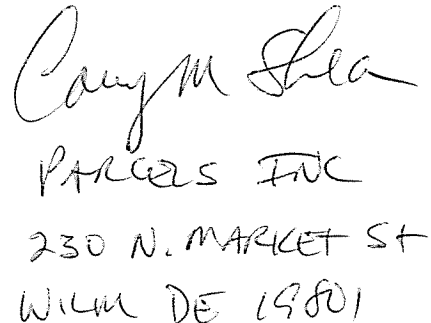 Corey M Shea
PARCELS INC
230 N. MARKET St
WILM DE 19801